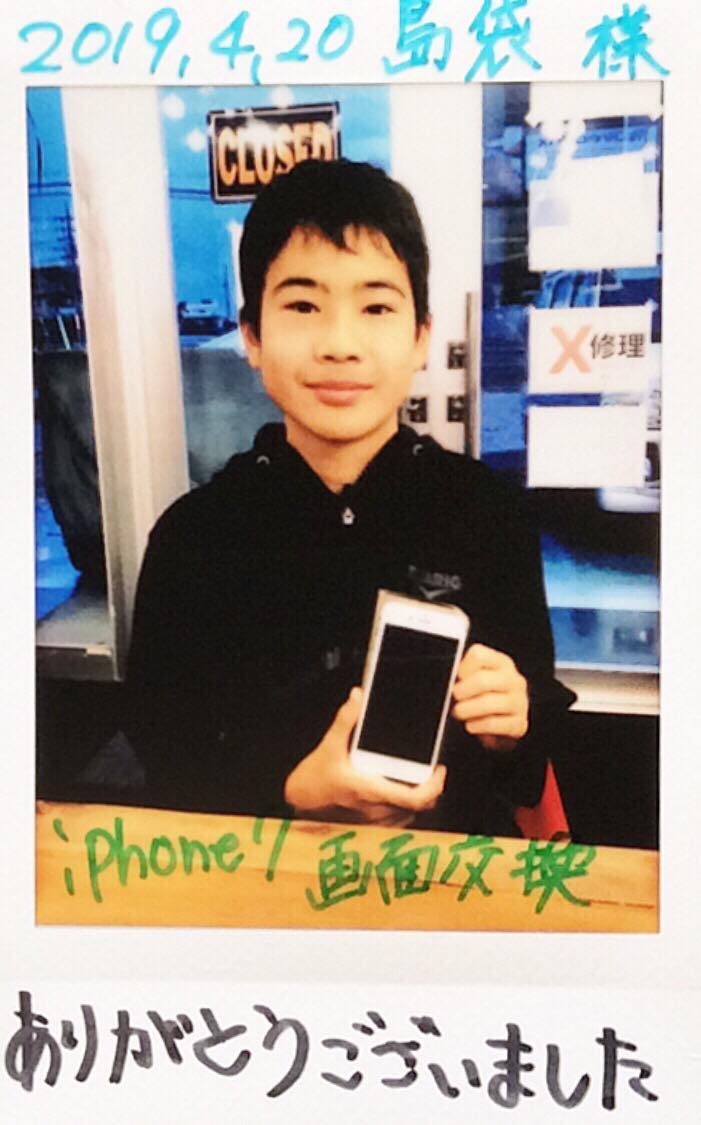 2019,4,20 島袋 様
CLOSED
X修理
iphone7 画面交換
ありがとうございました